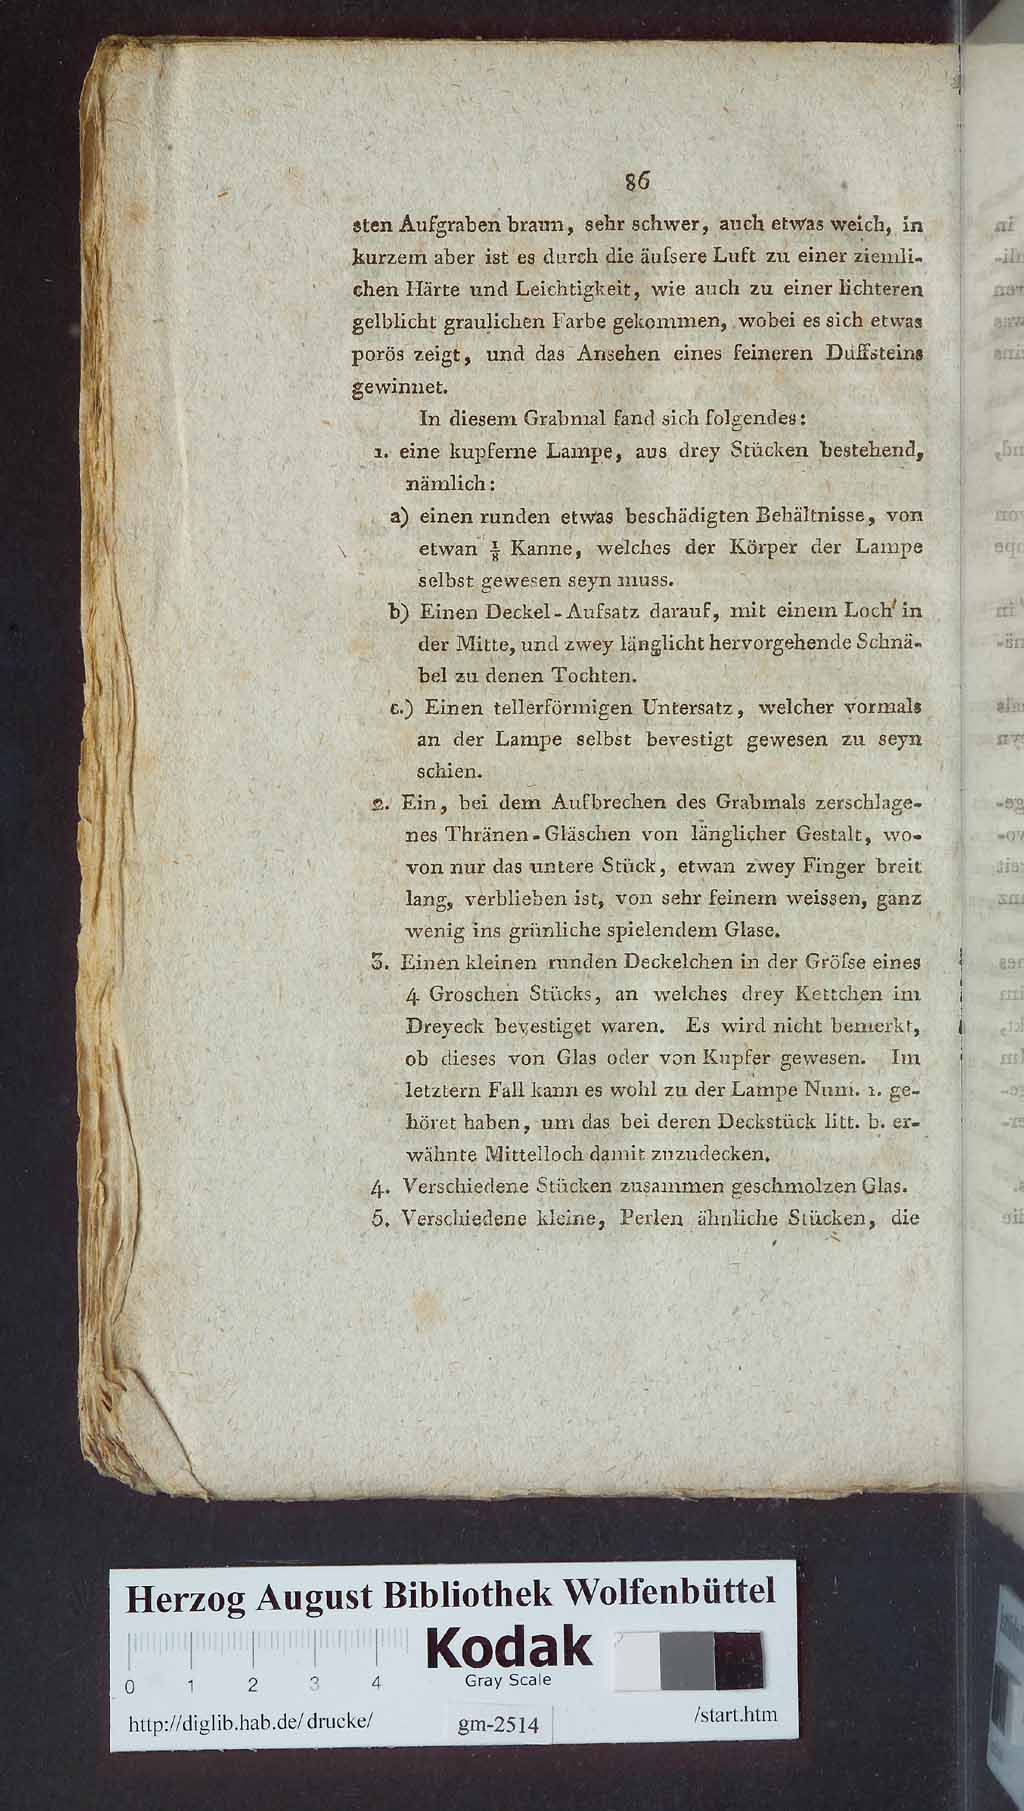 86
sten Aufgraben braun, sehr schwer, auch etwas weich, in
kurzem aber ist es durch die äufsere Luft zu einer ziemli-
chen Härte und Leichtigkeit, wie auch zu einer lichteren
gelblicht graulichen Farbe gekommen, wobei es sich etwas
porös zeigt, und das Ansehen eines feineren Duffsteins
gewinnet.
In diesem Grabmal fand sich folgendes:
1. eine kupferne Lampe, aus drey Stücken bestehend,
nämlich:
a) einen runden etwas beschädigten Behältnisse, von
etwan 1/8 Kanne, welches der Körper der Lampe
selbst gewesen seyn muss.
b) Einen Deckel-Aufsatz darauf, mit einem Loch in
der Mitte, und zwey länglicht hervorgehende Schnä-
bel zu denen Tochten.
c.) Einen tellerförmigen Untersatz, welcher vormals
an der Lampe selbst bevestigt gewesen zu seyn
schien.
2. Ein, bei dem Aufbrechen des Grabmals zerschlage-
nes Thränen-Gläschen von länglicher Gestalt, wo-
von nur das untere Stück, etwan zwey Finger breit
lang, verblieben ist, von sehr feinem weissen, ganz
wenig ins grünliche spielendem Glase.
3. Einen kleinen runden Deckelchen in der Gröfse eines
4 Groschen Stücks, an welches drey Kettchen im
Dreyeck bevestiget waren. Es wird nicht bemerkt,
ob dieses von Glas oder von Kupfer gewesen. Im
letztern Fall kann es wohl zu der Lampe Num. 1. ge-
höret haben, um das bei deren Deckstück litt. b. er-
wähnte Mittelloch damit zuzudecken.
4. Verschiedene Stücken zusammen geschmolzen Glas.
5. Verschiedene kleine, Perlen ähnliche Stücken, die
Herzog August Bibliothek Wolfenbüttel
Kodak
Gray Scale
0 1 2 3 4
http://diglib.hab.de/drucke/ gm-2514 /start.htm